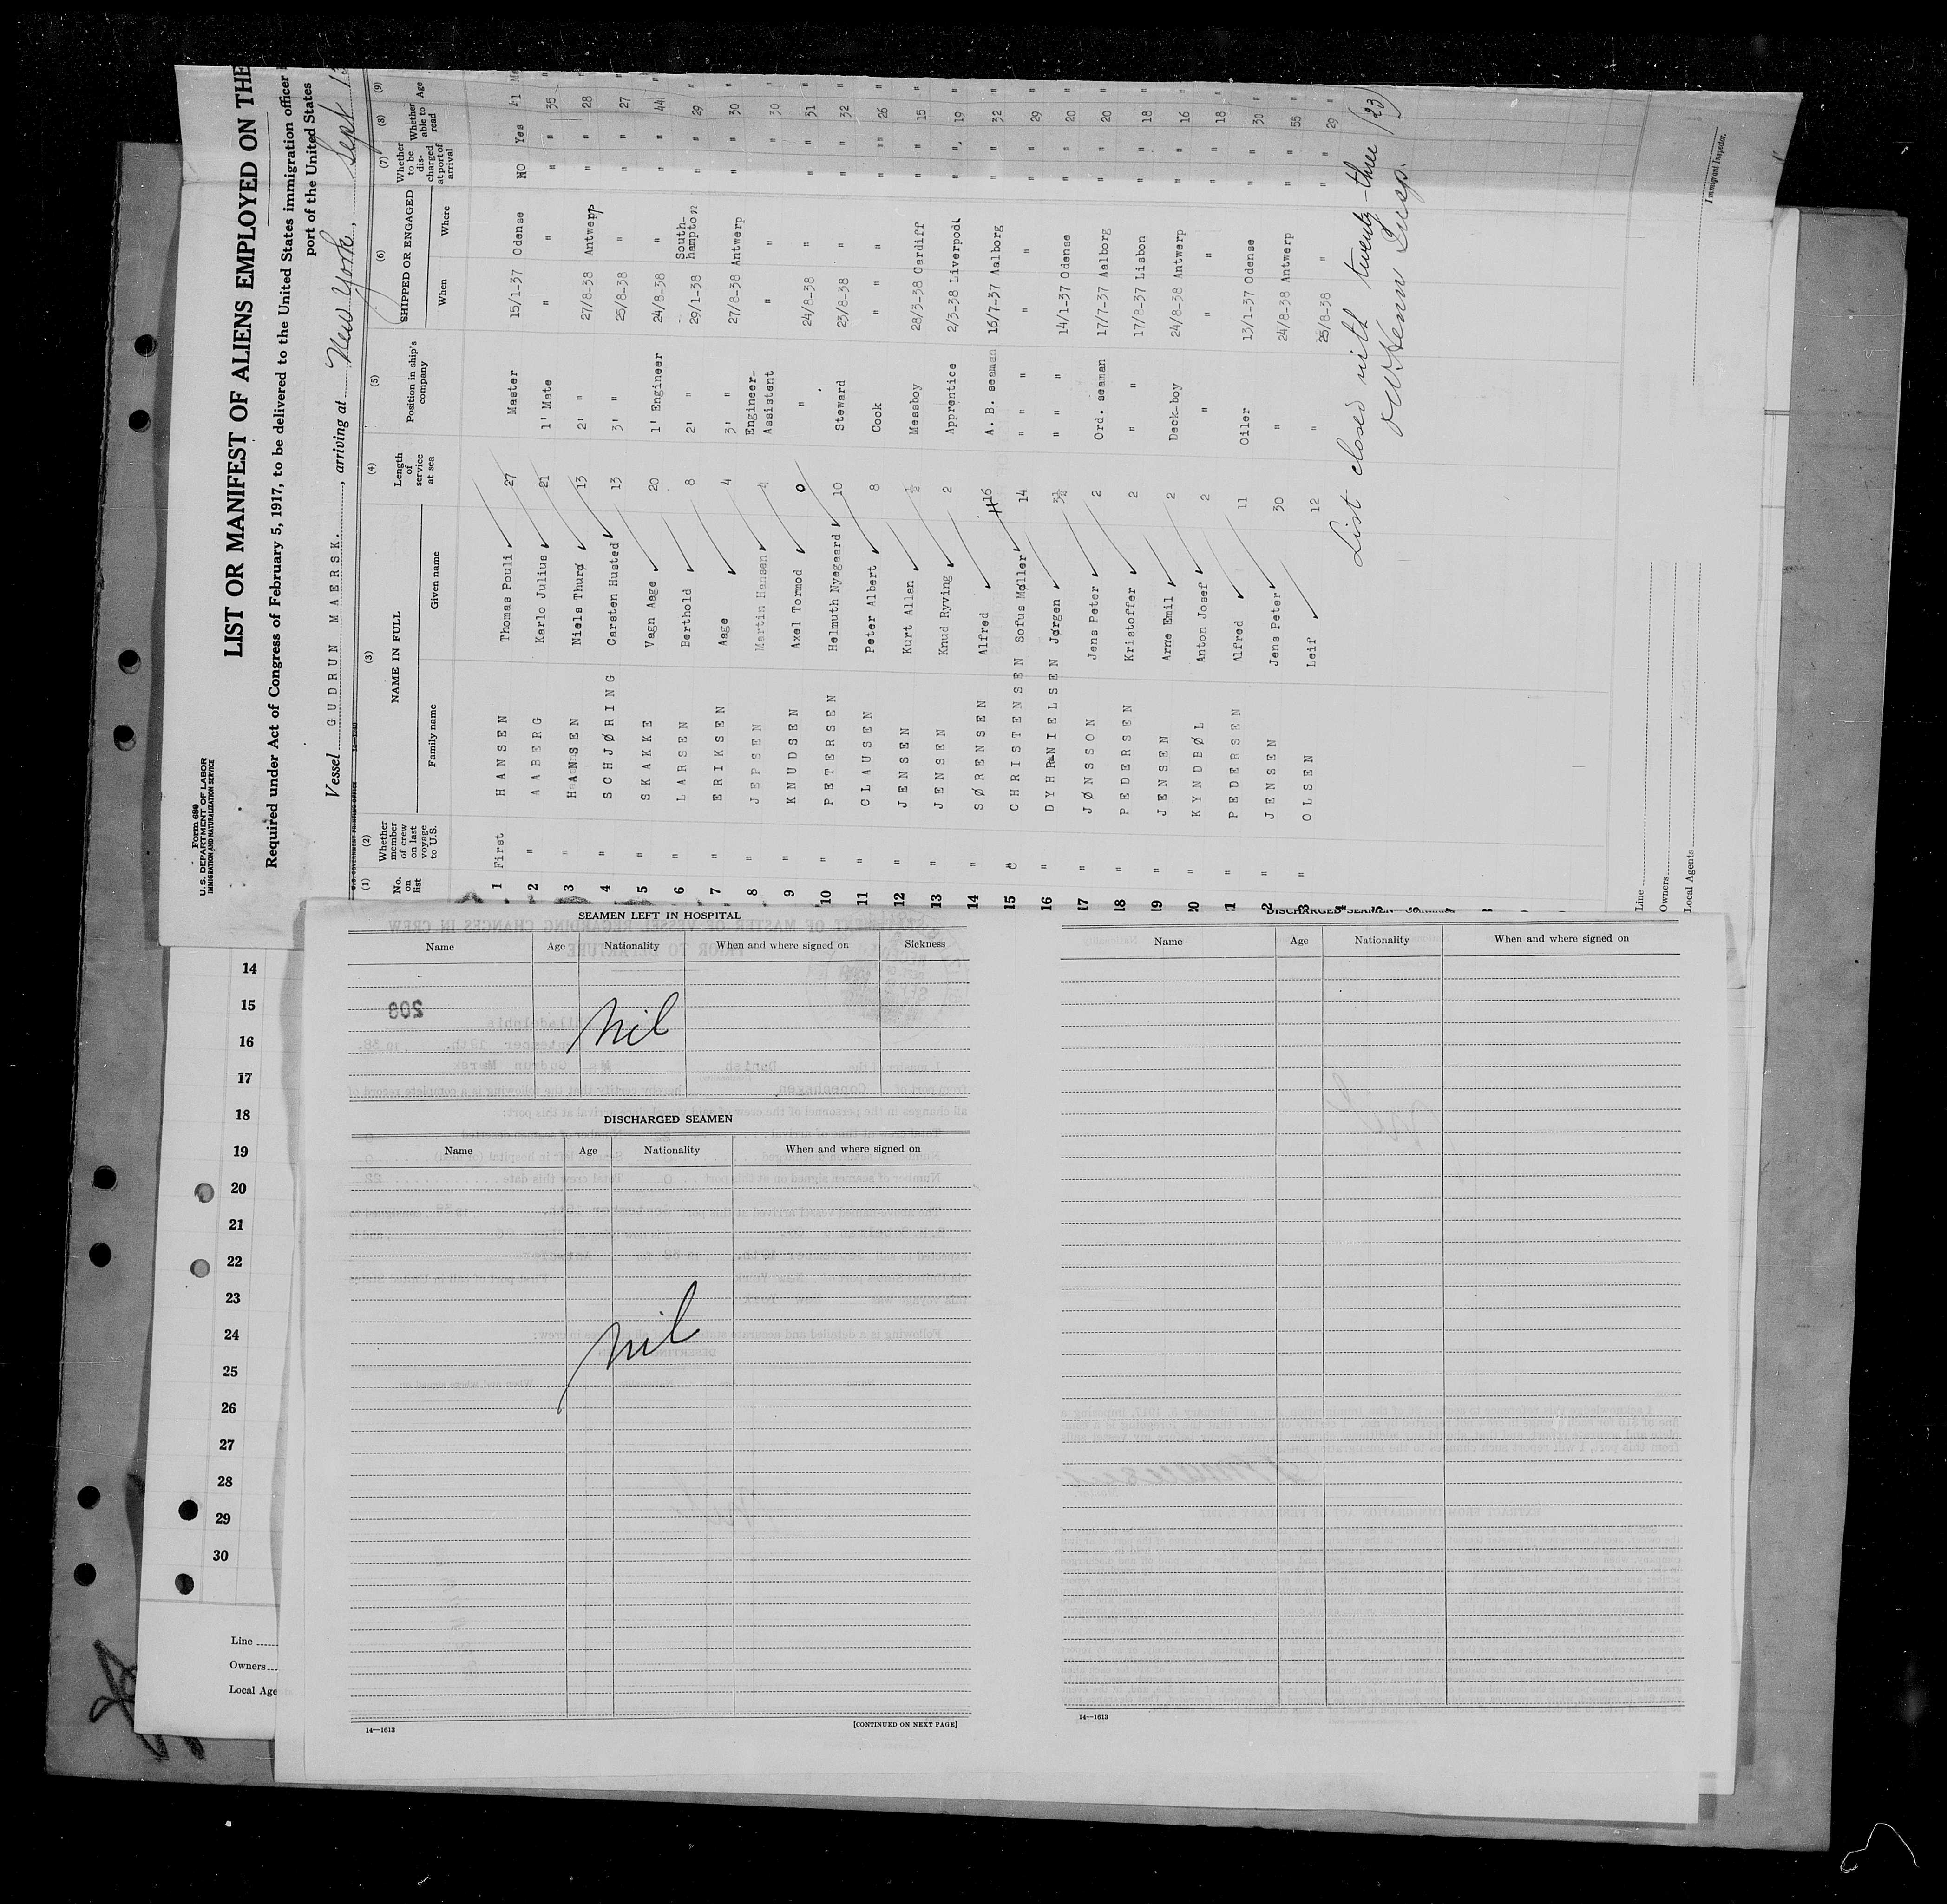 Form 689
U. S. DEPARTMENT OF LABOR
IMMIGRATION AND NATURALIZATION SERVICE
LIST OR MANIFEST OF ALIENS EMPLOYED ON THE
Required under Act of Congress of February 5, 1917, to be delivered to the United States immigration officer
port of the United States
Vessel GUDRUN MAERSK., arriving at New York, Sept 13
(1) (2) (3) (4) (5) (6) (7) (8) (9)
No. on list Whether member of crew on last voyage to U.S. NAME IN FULL Family name Given name Length of service at sea Position in ship's company SHIPPED OR ENGAGED When Where Whether to be discharged at port of arrival Whether able to read Age
1 First HANSEN Thomas Pouli 27 Master 15/1-37 Odense NO Yes 41
2 " AABERG Karlo Julius 21 1' Mate " " " " 35 "
3 " HANSEN Niels Thurø 13 2' " 27/8-38 Antwerp " " 28 "
4 " SCHJØRING Carsten Husted 13 3' " 25/8-38 " " " 27 "
5 " SKAKKE Vagn Aage 20 1' Engineer 24/8-38 " " " 44 "
6 " LARSEN Berthold 8 2' " 29/1-38 South-hampton " " 29 "
7 " ERIKSEN Aage 4 3' " 27/8-38 Antwerp " " 30 "
8 " JEPSEN Martin Hansen 4 Engineer-Assistent " " " " 30 "
9 " KNUDSEN Axel Tormod 0 " 24/8-38 " " " 31 "
10 " PETERSEN Helmuth Nyegaard 10 Steward 23/8-38 " " " 32 "
11 " CLAUSEN Peter Albert 8 Cook " " " " 26 "
12 " JENSEN Kurt Allan ½ Messboy 28/3-38 Cardiff " " 15 "
13 " JENSEN Knud Ryving 2 Apprentice 2/3-38 Liverpool " " 19 "
14 " SØRENSEN Alfred 16 A. B. seaman 16/7-37 Aalborg " " 32 "
15 CHRISTENSEN Sofus Møller 14 " " " " " " 29 "
16 " DYHR NIELSEN Jørgen 3½ " " 14/1-37 Odense " " 20 "
17 " JØNSSON Jens Peter 2 Ord. seaman 17/7-37 Aalborg " " 20 "
18 " PEDERSEN Kristoffer 2 " " 17/8-37 Lisbon " " 18 "
19 " JENSEN Arne Emil 2 Deck-boy 24/8-38 Antwerp " " 16 "
20 " KYNDBØL Anton Josef 2 " " " " " 18 "
1 " PEDERSEN Alfred 11 Oiler 13/1-37 Odense " " 30 "
2 " JENSEN Jens Peter 30 " 24/8-38 Antwerp " " 55 "
3 " OLSEN Leif 12 " 25/8-38 " " " 29 "
List closed with twenty-three (23)
Insp.
Line
Owners
Local Agents
Immigrant Inspector.
14
15
16
17
18
19
20
21
22
23
24
25
26
27
28
29
30
Line
Owners
Local Age
SEAMEN LEFT IN HOSPITAL
Name Age Nationality When and where signed on Sickness
nil
DISCHARGED SEAMEN
Name Age Nationality When and where signed on
nil
14—1613 [CONTINUED ON NEXT PAGE]
Name Age Nationality When and where signed on
14—1613